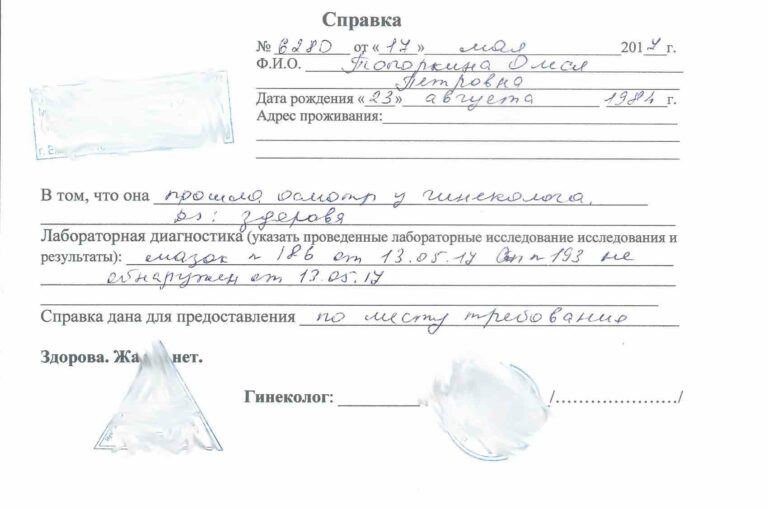 Справка
№ 6280 от « 17 » мая 2017 г.
Ф.И.О. Топоркина Олеся
Петровна
Дата рождения « 23 » августа 1984 г.
Адрес проживания:
В том, что она прошла осмотр у гинеколога.
Ds: здорова
Лабораторная диагностика (указать проведенные лабораторные исследование исследования и
результаты): мазок n 186 от 13.05.17 n 193 не
обнаружен от 13.05.17
Справка дана для предоставления по месту требования
Здорова. нет.
Гинеколог: /…………………/